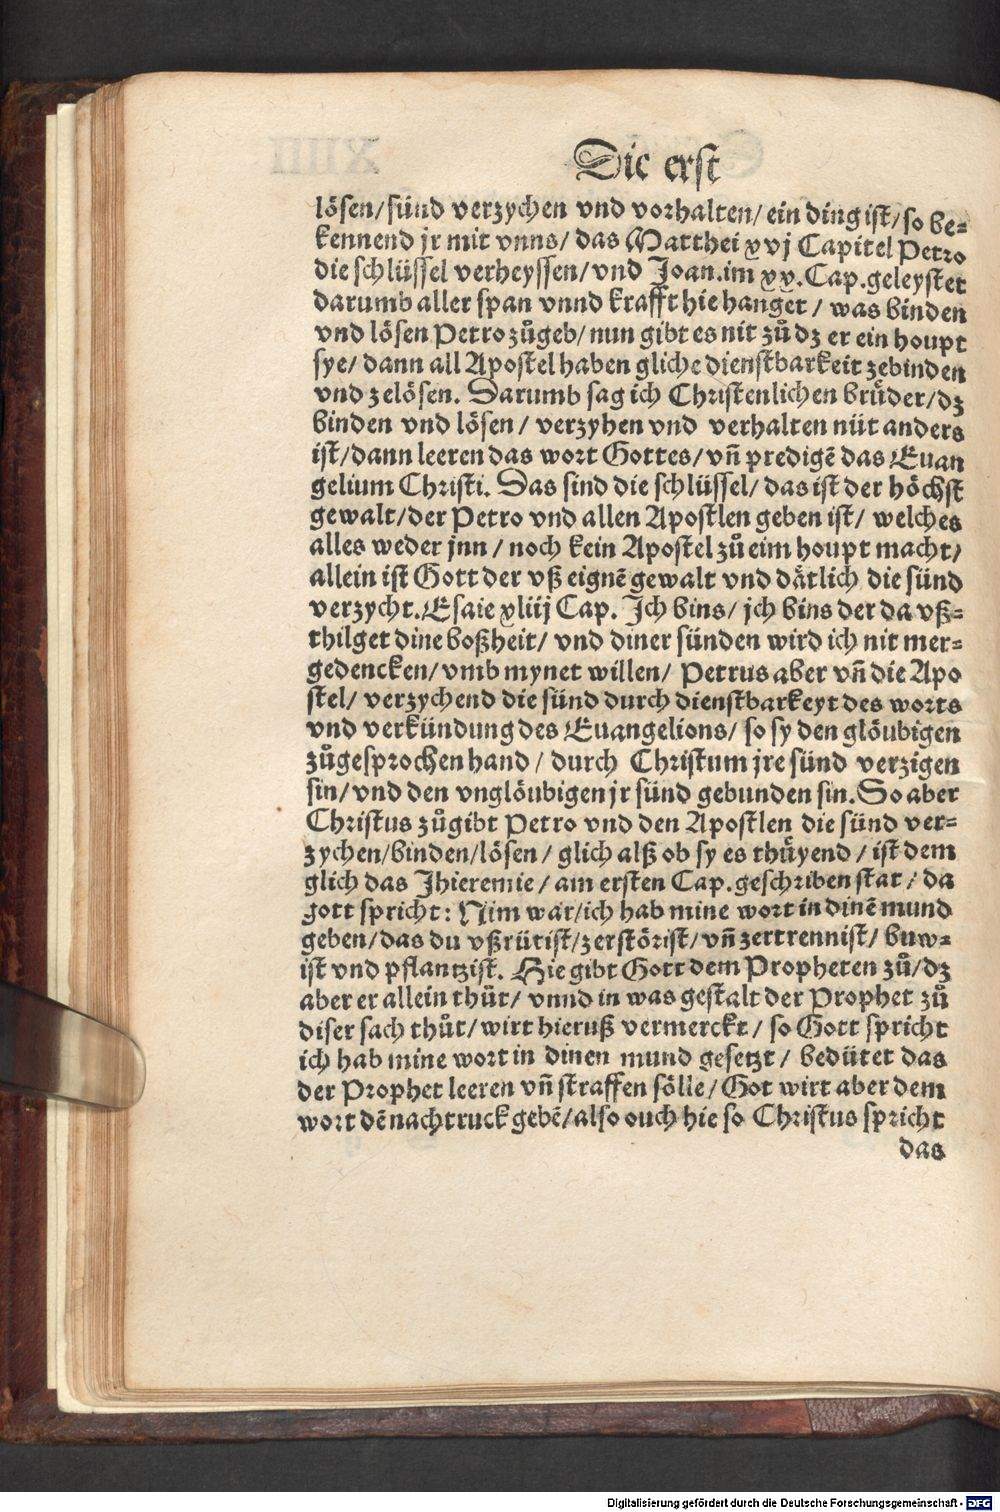 Die erst
lösen/sünd verzychen vnd vorhalten/ ein ding ist/ so be⸗
kennend jr mit vnns/ das Matthei xvj Capitel Petro
die schlüssel verheyssen/vnd Joan.im xx. Cap. geleystet
darumb aller span vnnd krafft hie hanget / was binden
vnd lösen Petro zůgeb/ nun gibt es nit zů dz er ein houpt
sye/ dann all Apostel haben gliche dienstbarkeit zebinden
vnd zelösen. Darumb sag ich Christenlichen brůder/dz
binden vnd lösen / verzyhen vnd verhalten nüt anders
ist/dann leeren das wort Gottes/ vñ predigẽ das Euan
gelium Christi. Das sind die schlüssel/ das ist der höchst
gewalt/der Petro vnd allen Apostlen geben ist/ welches
alles weder jnn / noch kein Apostel zů eim houpt macht/
allein ist Gott der vß eignẽ gewalt vnd dätlich die sünd
verzycht.Esaie xliij Cap. Ich bins/ jch bins der da vß⸗
thilget dine boßheit/ vnd diner sünden wird ich nit mer⸗
gedencken/ vmb mynet willen/ Petrus aber vñ die Apo
stel/ verzychend die sünd durch dienstbarkeyt des worts
vnd verkündung des Euangelions/ so sy den glöubigen
zůgesprochen hand / durch Christum jre sünd verzigen
sin/ vnd den vnglöubigen jr sünd gebunden sin. So aber
Christus zůgibt Petro vnd den Apostlen die sünd ver⸗
zychen/binden/lösen / glich alß ob sy es thüyend / ist dem
glich das Jhieremie / am ersten Cap. geschriben stat / da
gott spricht: Nim war/ich hab mine wort in dinẽ mund
geben/das du vßrütist/zerstörist/vñ zertrennist/ buw⸗
ist vnd pflantzist. Hie gibt Gott dem Propheten zů/dz
aber er allein thůt/ vnnd in was gestalt der Prophet zů
diser sach thůt/wirt hieruß vermerckt / so Gott spricht
ich hab mine wort in dinen mund gesetzt / bedütet das
der Prophet leeren vñ straffen sölle/ Got wirt aber dem
wort dẽ nachtruck gebẽ/also ouch hie so Christus spricht
das
Digitalisierung gefördert durch die Deutsche Forschungsgemeinschaft - DFG